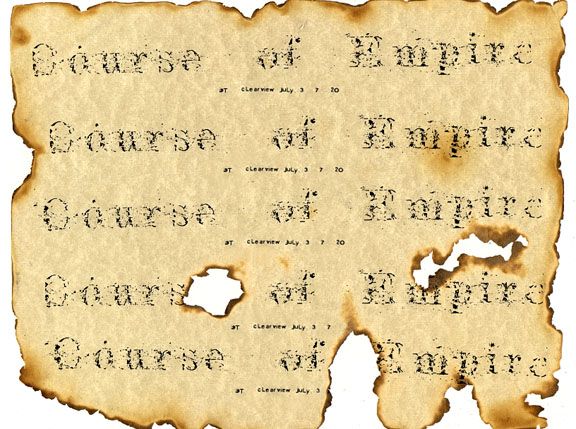 Course of Empire
aT cLearview JuLy 3 7 20
Course of Empire
aT cLearview JuLy 3 7 20
Course of Empire
aT cLearview JuLy 3 7 20
Cours of Empire
aT cLearview JuLy 3 7
Course of Empire
aT cLearview JuLy 3